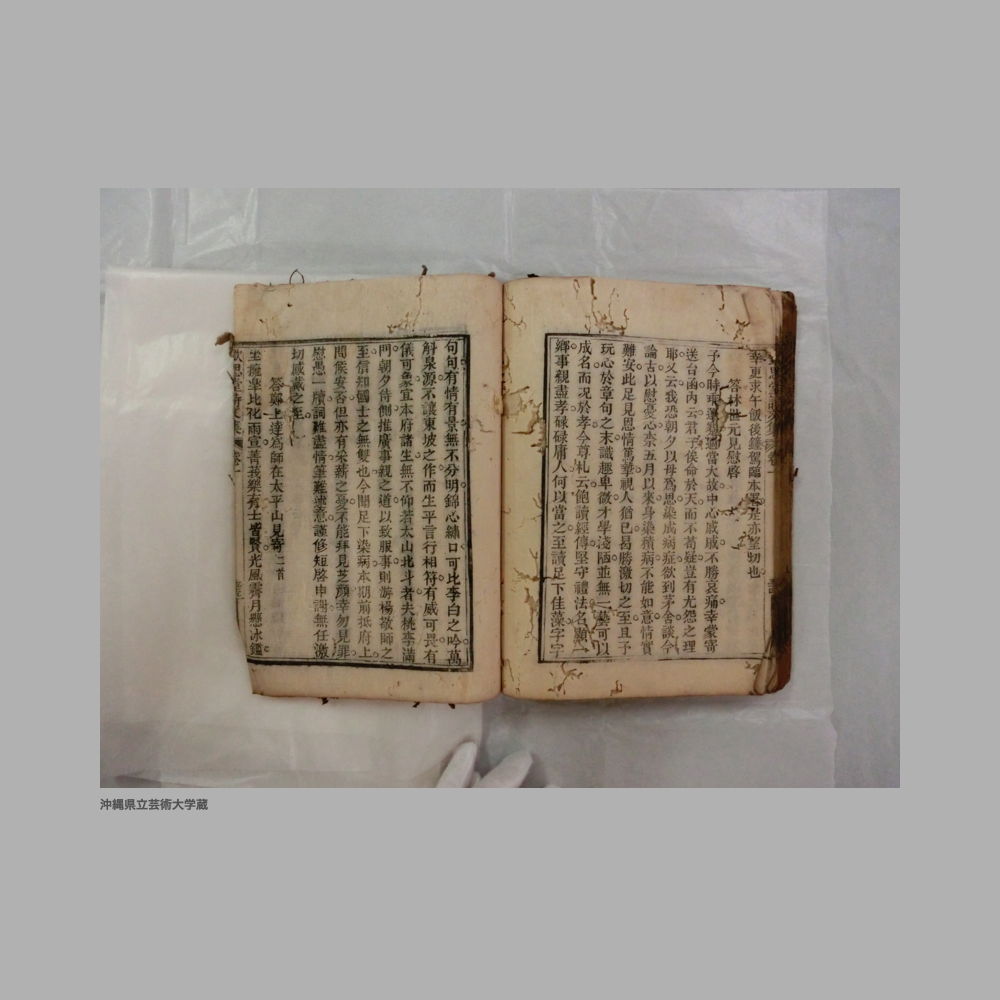 幸更求午飯後鏵駕臨本署是亦望切也
答林世元見慰啓
予今時乖運適當大故中心戚戚不勝哀痛幸蒙寄
送台函内云君子俟命於天而不苟疑豈有尤怨之理
耶又云我恐朝夕以母爲思染成病症欲到茅舍談今
論古以慰憂心柰五月以來身染積病不能如意情實
難安此足見恩情篤摯視人猶已曷勝激切之至且予
玩心於章句之末識趣卑微才學淺陋並無一藝可以
成名而況於孝今尊札云飽讀經傳堅守禮法名顯一
鄉事親盡孝碌碌庸人何以當之至讀足下佳藻字字
句句有情有景無不分明錦心繡口可比李白之吟萬
斛泉源不讓東坡之作而生平言行相符有威可畏有
儀可象宜本府諸生無不仰若太山北斗者夫桃李滿
門朝夕侍側推廣事親之道以致服事則游楊敬師之
至信知國士之無雙也今聞足下染病本期前抵府上
問候安否但亦有采薪之憂不能拜見芝顏幸勿見罪
慰愚一牘詞難盡情筆難述意謹修短啓申謝無任激
切感戴之至
答鄭上達爲師在太平山見寄二首
坐擁皋比化雨宣菁莪樂有士皆賢光風霽月懸冰鑑
沖縄県立芸術大学蔵